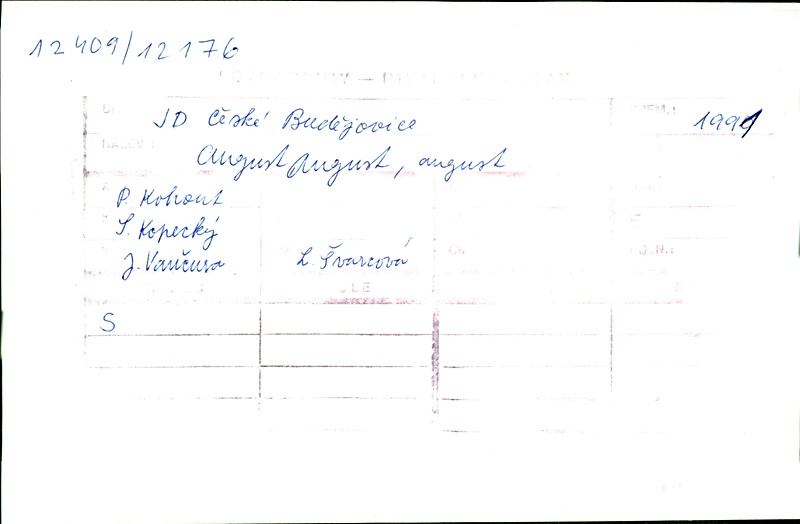 12409/12176
JD České Budějovice 1991
August August, august
P. Kohout
S. Kopecký
J. Vančura L. Švarcová
S